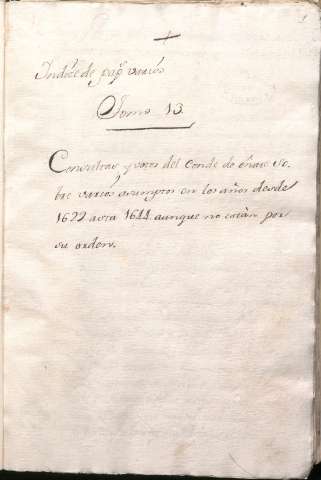 1
Indize de pap.s varios
Tomo 13.
Consultas y votos del Conde de Oñate so-
bre varios asumptos en los años desde
1622 asta 1644 aunque no están por
su orden.